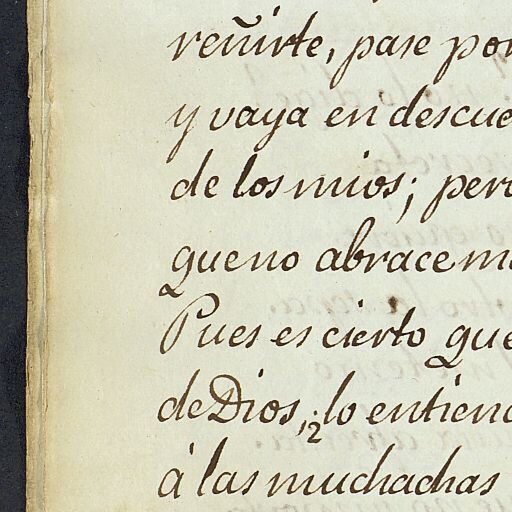 reñirte, pase por
y vaya en descue
de los mios; pero
que no abrace m
Pues es cierto que
de Dios, ¿lo entien
á las muchachas